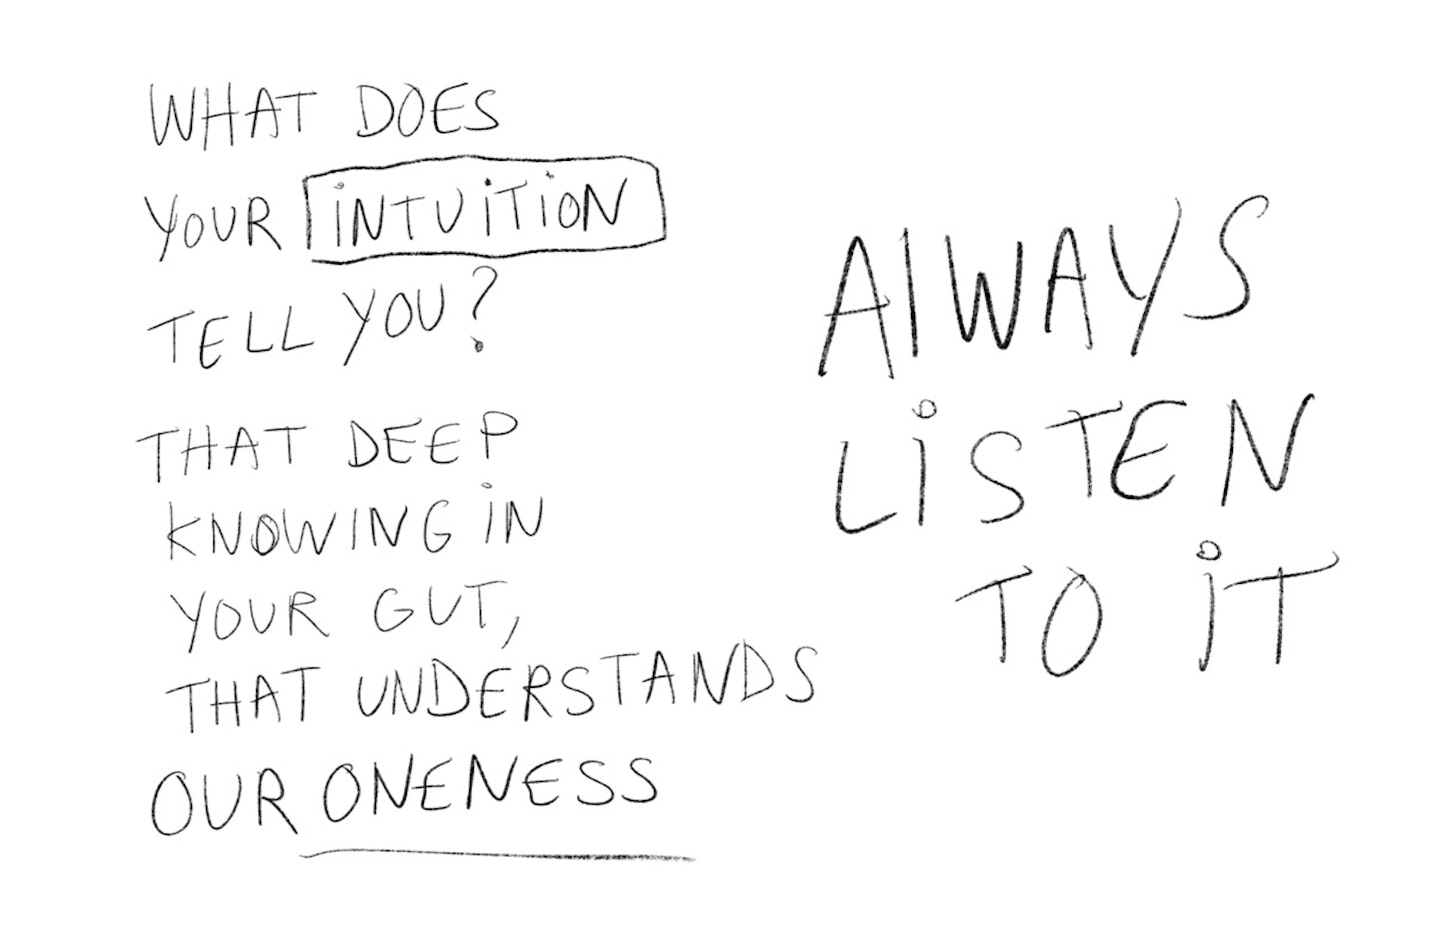 WHAT DOES
YOUR iNTUiTiON
TELL YOU?
THAT DEEP
KNOWING iN
YOUR GUT,
THAT UNDERSTANDS
OUR ONENESS
AlWAYS
LiSTEN
TO iT